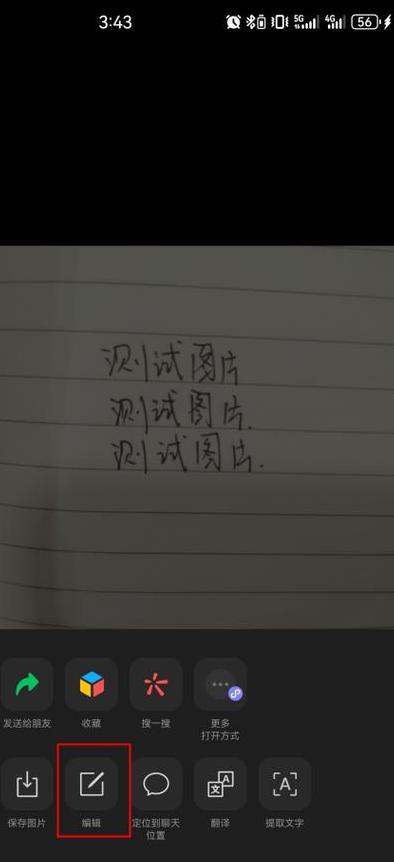 3:43 5G 4G 56
测试图片
测试图片.
测试图片.
发送给朋友 收藏 搜一搜 更多打开方式
保存图片 编辑 定位到聊天位置 翻译 提取文字